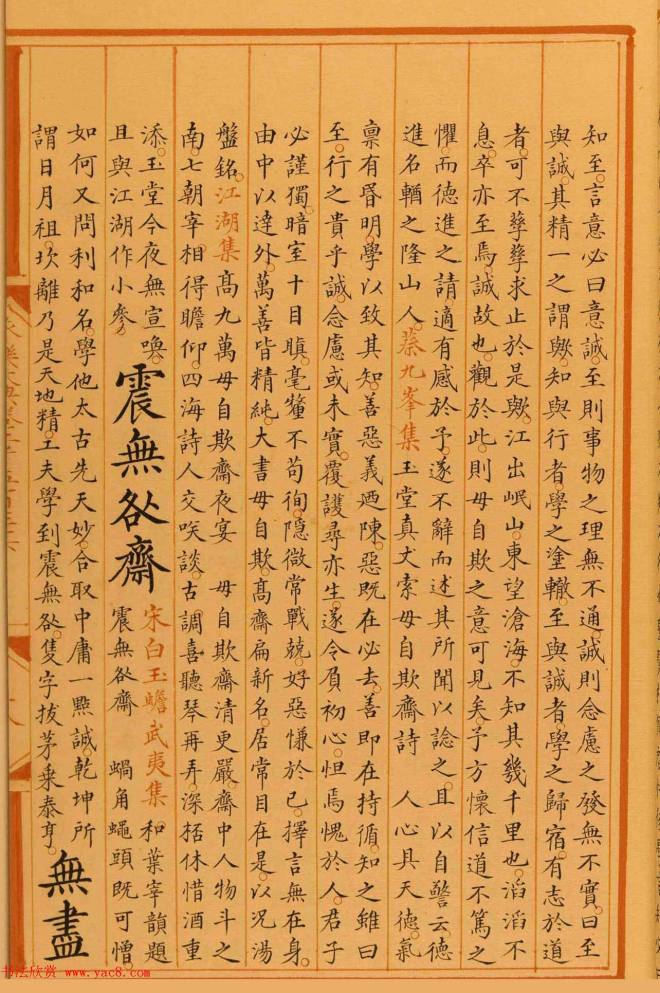 知至。言意必曰意誠。至則事物之理無不通。誠則念慮之發無不實。曰至
與誠。其精一之謂歟。知與行者。學之塗轍。至與誠者。學之歸宿。有志於道
者。可不孳孳求止於是歟。江出岷山。東望滄海。不知其幾千里也。滔滔不
息。卒亦至焉。誠故也。觀於此。則毋自欺之意可見矣。予方懷信道不篤之
懼。而德進之請。適有感於予。遂不辭而述其所聞以諗之。且以自警云。德
進名輶之隆山人。蔡九峯集玉堂真丈索毋自欺齋詩 人心具天德。氣
禀有昏明。學以致其知。善惡義迺陳。惡既在必去。善即在持循。知之雖曰
至。行之貴乎誠。念慮或未實。覆護尋亦生。遂令負初心。怛焉愧於人。君子
必謹獨。暗室十目瞋。毫釐不苟徇。隱微常戰兢。好惡慊於已。擇言無在身。
由中以達外。萬善皆精純。大書毋自欺。髙齋扁新名。居常目在是。以况湯
盤銘。江湖集髙九萬毋自欺齋夜宴 毋自欺齋清更嚴。齋中人物斗之
南。七朝宰相得瞻仰。四海詩人交咲談。古調喜聽琴再弄。深栝休惜酒重
添。玉堂今夜無宣喚。且與江湖作小參。
震無咎齋
宋白玉蟾武夷集和葉宰韻題震無咎齋 蝸角蠅頭既可憎。
如何又問利和名。學他太古先天妙。合取中庸一㸃誠。乾坤所
謂日月祖。坎離乃是天地精。工夫學到震無咎。隻字拔茅来泰亨。
無盡
书法欣赏 www.yac8.com